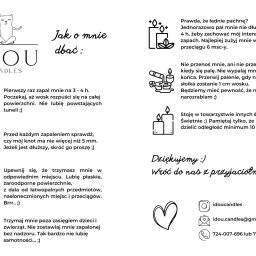 IDOU
CANDLES
Jak o mnie
dbać :
Pierwszy raz zapal mnie na 3 - 4 h.
Poczekaj, aż wosk rozpuści się na całej
powierzchni. Nie lubię powstających
tuneli ;)
Przed każdym zapaleniem sprawdź,
czy mój knot ma nie więcej niż 5 mm.
Jeżeli jest dłuższy, skróć go proszę ;)
Upewnij się, że trzymasz mnie w
odpowiednim miejscu. Lubię płaskie,
żaroodporne powierzchnie,
z dala od łatwopalnych przedmiotów,
nasłonecznionych miejsc i przeciągów.
Brrr.. ;)
Trzymaj mnie poza zasięgiem dzieci i
zwierząt. Nie zostawiaj mnie zapalonej
bez nadzoru. Tak bardzo nie lubię
samotności... ;)
Prawda, że ładnie pachnę?
Jednorazowo pal mnie nie dłu
4 h, żeby zachować mój inten
zapach. Najlepiej zużyj mnie w
przeciągu 6 msc-y.
Nie przenoś mnie, ani nie prze
kiedy się palę. Nie wypalaj mn
końca. Przerwij palenie, gdy n
słoika zostanie 1 cm wosku.
Będziemy mieć pewność, że n
narozrabiam ;)
Stoję w towarzystwie innych ś
Świetnie ;) Pamiętaj tylko, że
dzielić odległość minimum 10
Dziękujemy :)
Wróć do nas z przyjaciółm
idoucandles
idou.candles@gm
724-007-696 lub 7